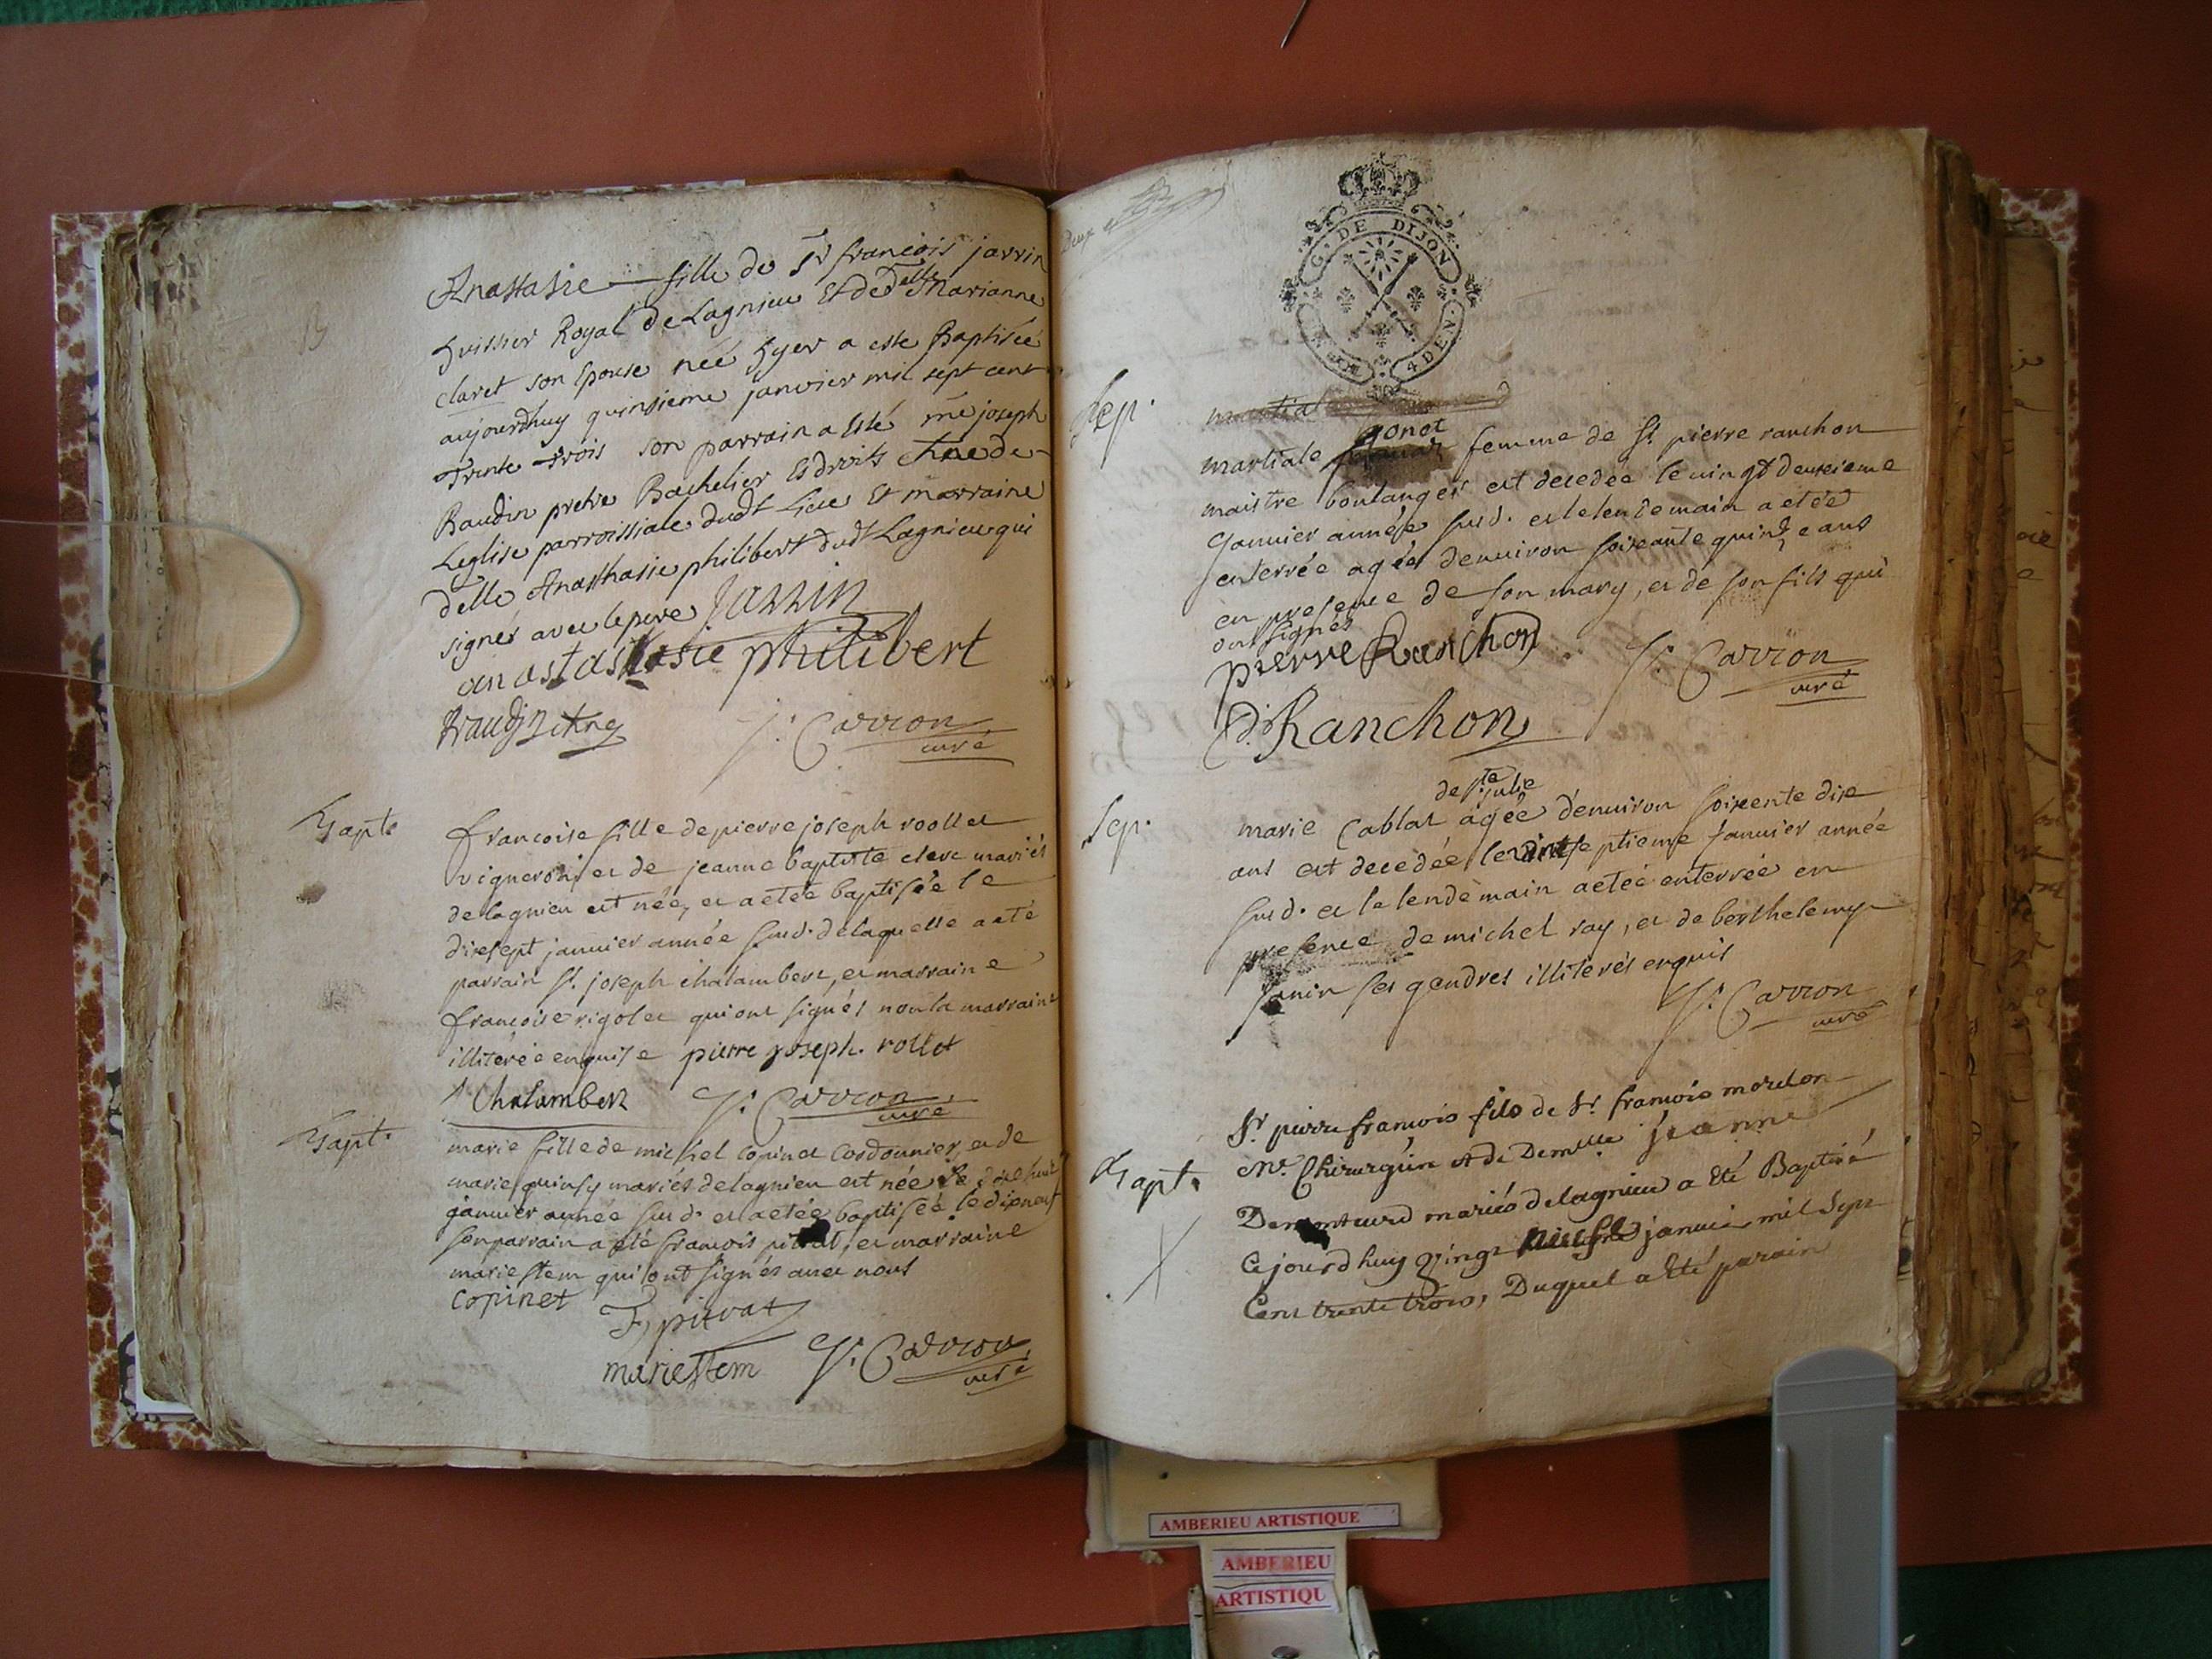 Anastasie fille de Sr françois jarrin
huissier Royal de Lagnieu Et de Delle Marianne
claret son Epouse née hyer a esté Baptisée
aujourdhuy quinsieme janvier mil sept cent
Trente trois son parrain a Esté mre joseph
Baudin pretre Bachelier Es droits chne de
Leglise parroissiale dudt Lieu Et marraine
delle Anasthasie philibert dudt Lagnieu qui
signés avec le pere Jarrin
philibert
Baudin chne
J. Carron
curé
Bapt.
francoise fille de pierre joseph roollet
vigneron et de jeanne baptiste clerc mariés
de lagnieu est née, et a etée baptisée le
dixsept januier année susd. de laquelle a eté
parrain Sr. joseph chalambert, et marraine
francoise rigolet qui ont signés non la marraine
illiterée enquise pierre joseph. rollet
Chalamber
J. Carron
curé
Bapt.
marie fille de michel copinet cordonnier, et de
marie quinsy mariés de lagnieu est née le dixhuit
januier année susd. et a etée baptisée le dixneuf
son parrain a eté francois pitrat, et marraine
marie stem qui ont signés avec nous
copinet
F. pitrat
marie stem
J. Carron
curé
G. DE DIJON
4 DEN.
Sep.
martial
gonet
martiale femme de Sr. pierre ranchon
maistre boulanger est decedée le vingt deuxieme
Januier année susd. et le lendemain a etée
enterrée agée denuiron soixante quinze ans
en presence de son mary, et de son fils qui
ont signés
pierre Ranchon
J. Carron
curé
Ranchon
Sep.
de Ste julie
marie Cablat agée denuiron soixente dix
ans est decedée le vintseptieme Januier année
susd. et le lendemain a etée enterrée en
presence de michel ray, et de berthelemy
Janin ses gendres illiterés enquis
J. Carron
curé
Bapt.
Sr pierre francois fils de Sr. francois mordon
Me. Chirurgien et de Demlle jeanne
mariés de lagnieu a Eté Baptisé
Ce jourd huy Vingt januier mil Sept
Cent trente trois, Duquel a Eté parain
AMBERIEU ARTISTIQUE
AMBERIEU
ARTISTIQU